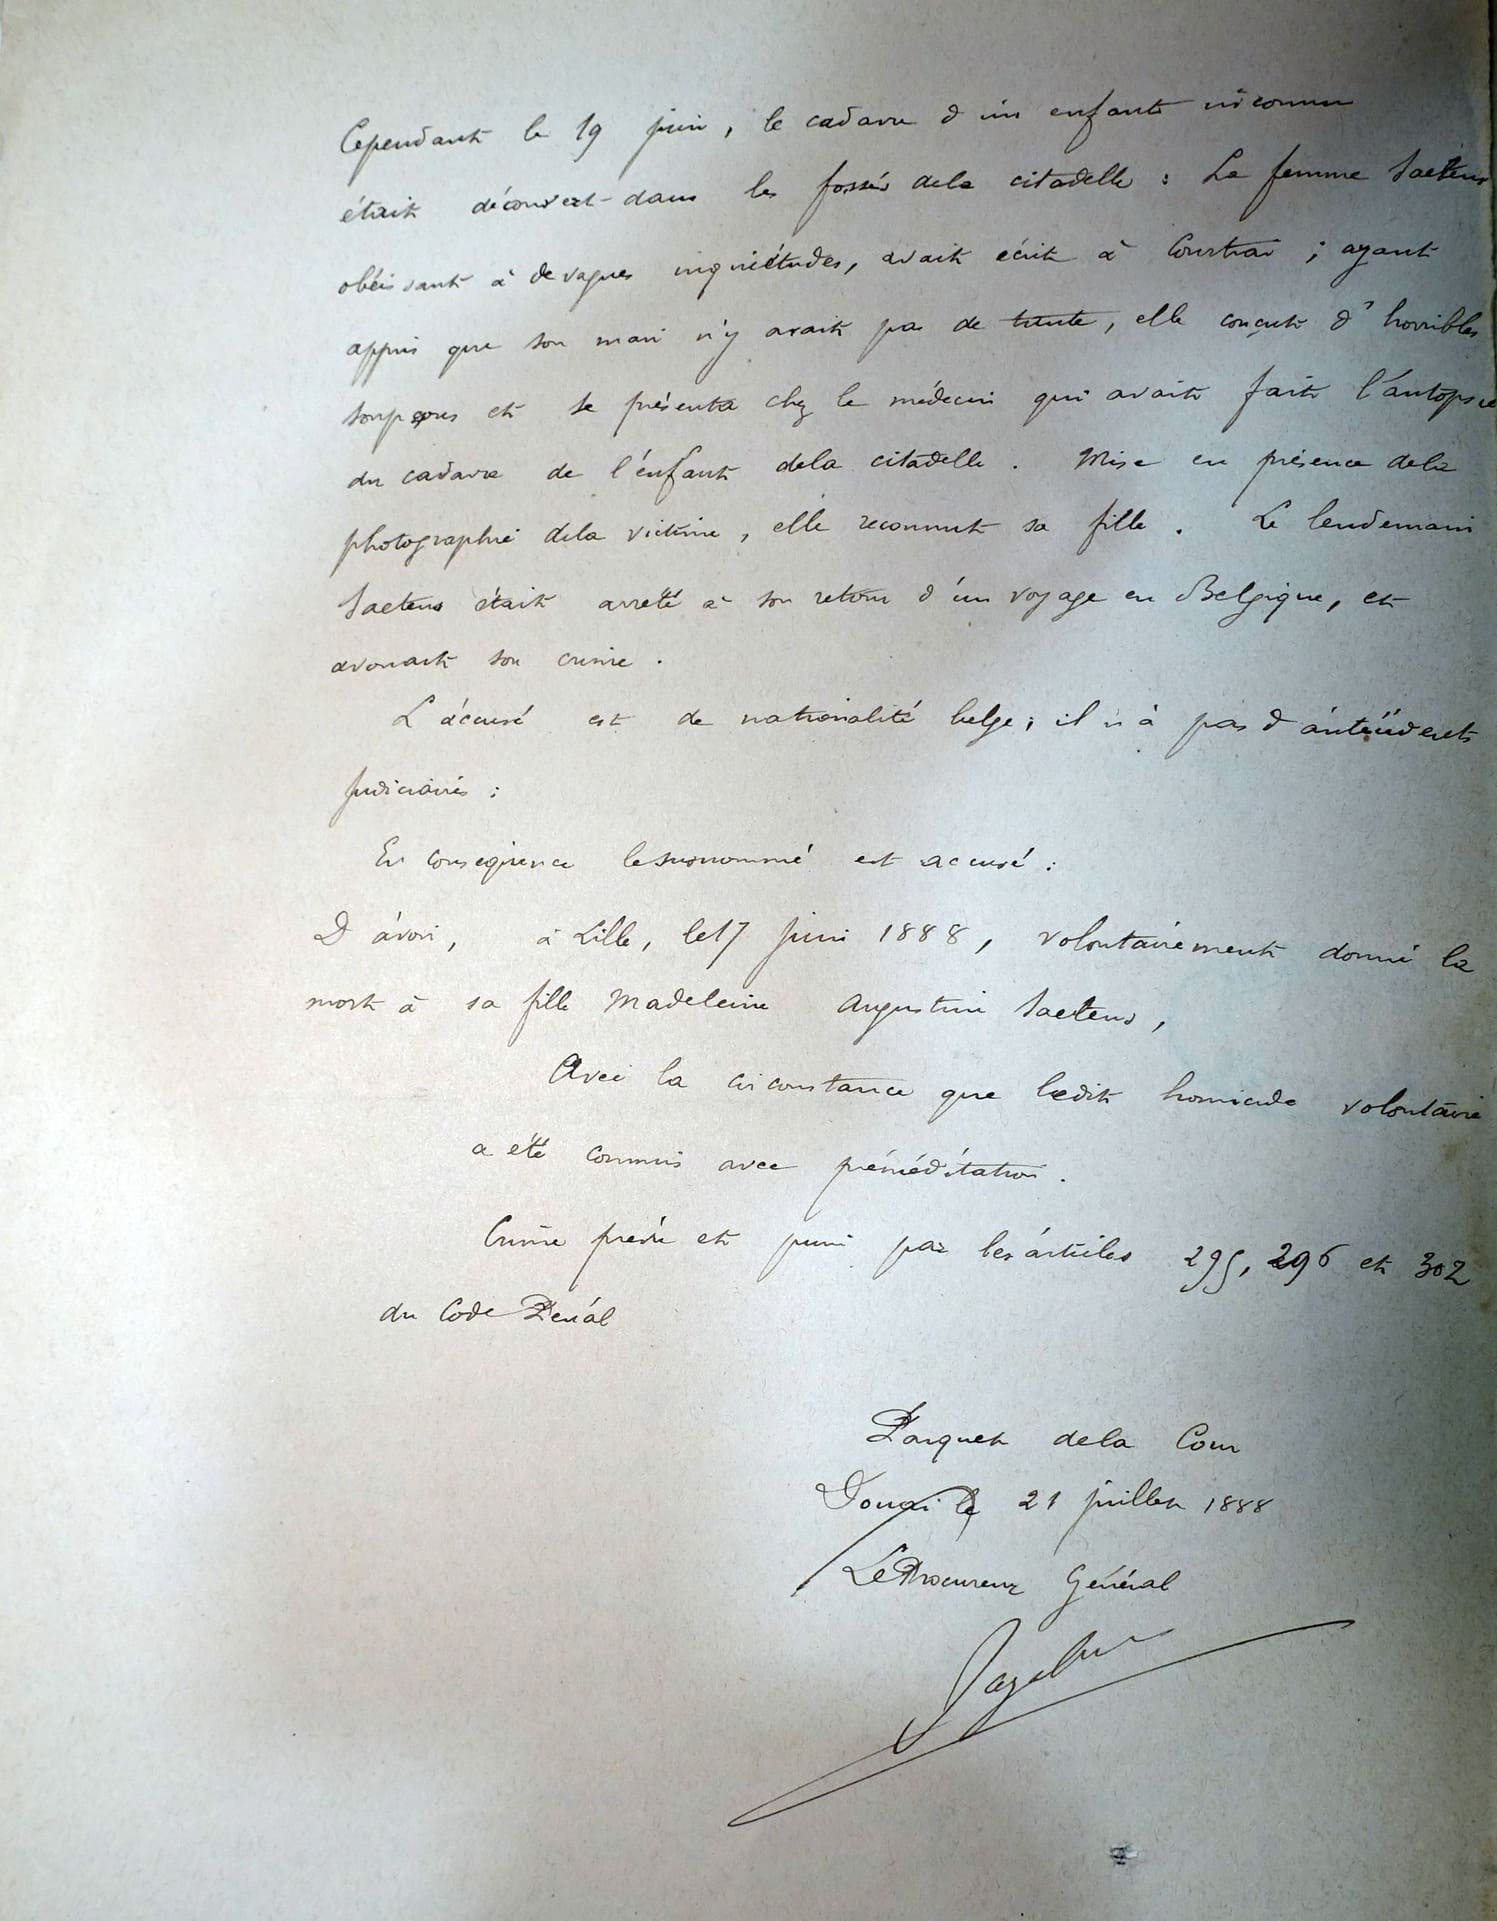 Cependant le 19 juin, le cadavre d'un enfant inconnu
était découvert dans les fossés de la citadelle : La femme Saetens
obéissant à de vagues inquiétudes, avait écrit à Courtrai ; ayant
appris que son mari n'y avait pas de tante, elle conçut d'horribles
soupçons et se présenta chez le médecin qui avait fait l'autopsie
du cadavre de l'enfant de la citadelle. Mise en présence de la
photographie de la victime, elle reconnut sa fille. Le lendemain
Saetens était arrêté à son retour d'un voyage en Belgique, et
avouait son crime.
L'accusé est de nationalité belge ; il n'a pas d'antécédents
judiciaires :
En conséquence le susnommé est accusé :
D'avoir, à Lille, le 17 juin 1888, volontairement donné la
mort à sa fille Madeleine Augustine Saetens,
Avec la circonstance que ledit homicide volontaire
a été commis avec préméditation.
Crime prévu et puni par les articles 295, 296 et 302
du Code Pénal
Parquet de la Cour
Douai le 21 juillet 1888
Le Procureur Général